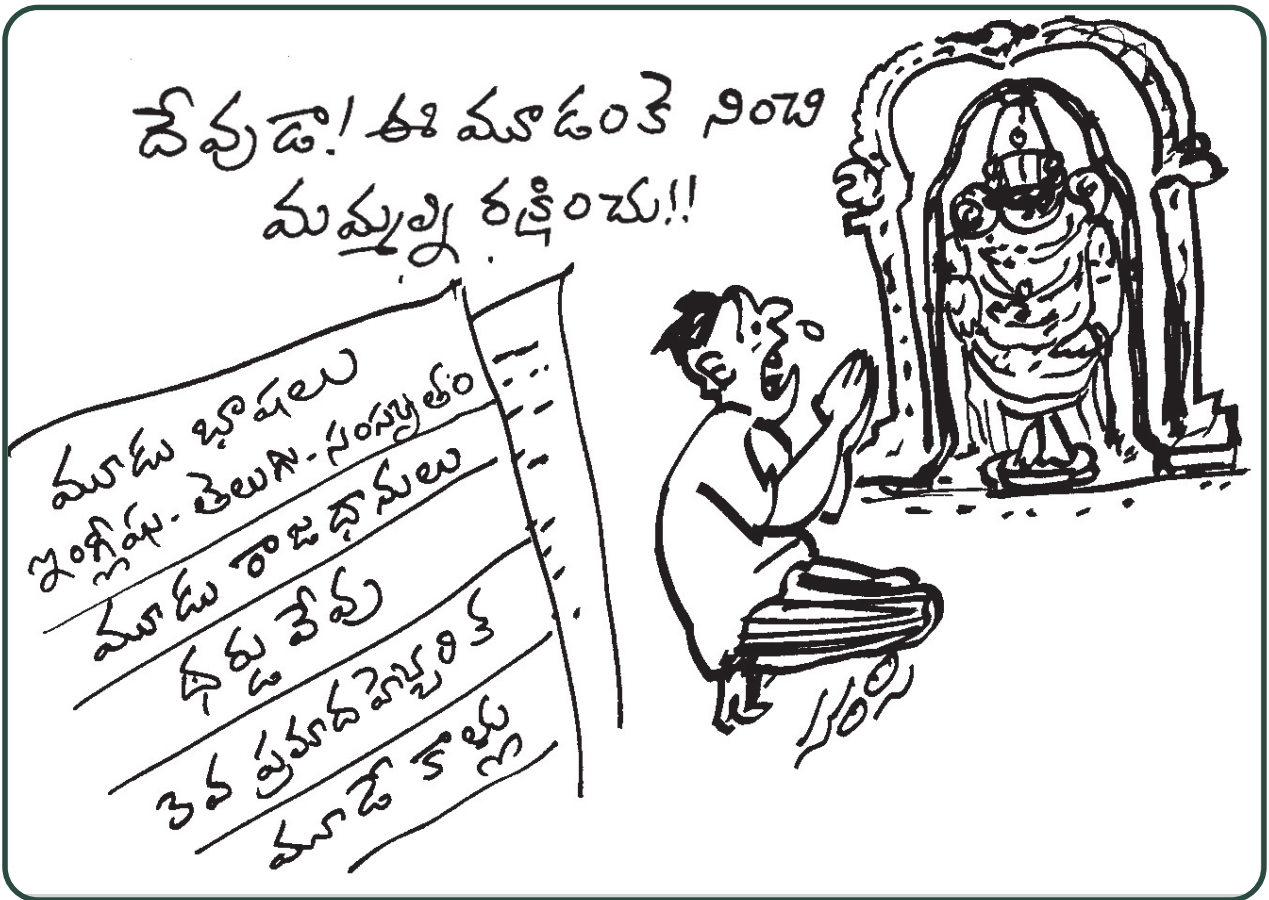 దేవుడా! ఈ మూడంకె నించి
మమ్మల్ని రక్షించు!!
మూడు భాషలు
ఇంగ్లీషు - తెలుగు - సంస్కృతం
మూడు రాజధానులు
థర్డు వేవు
3వ ప్రమాద హెచ్చరిక
మూడే కాళ్లు